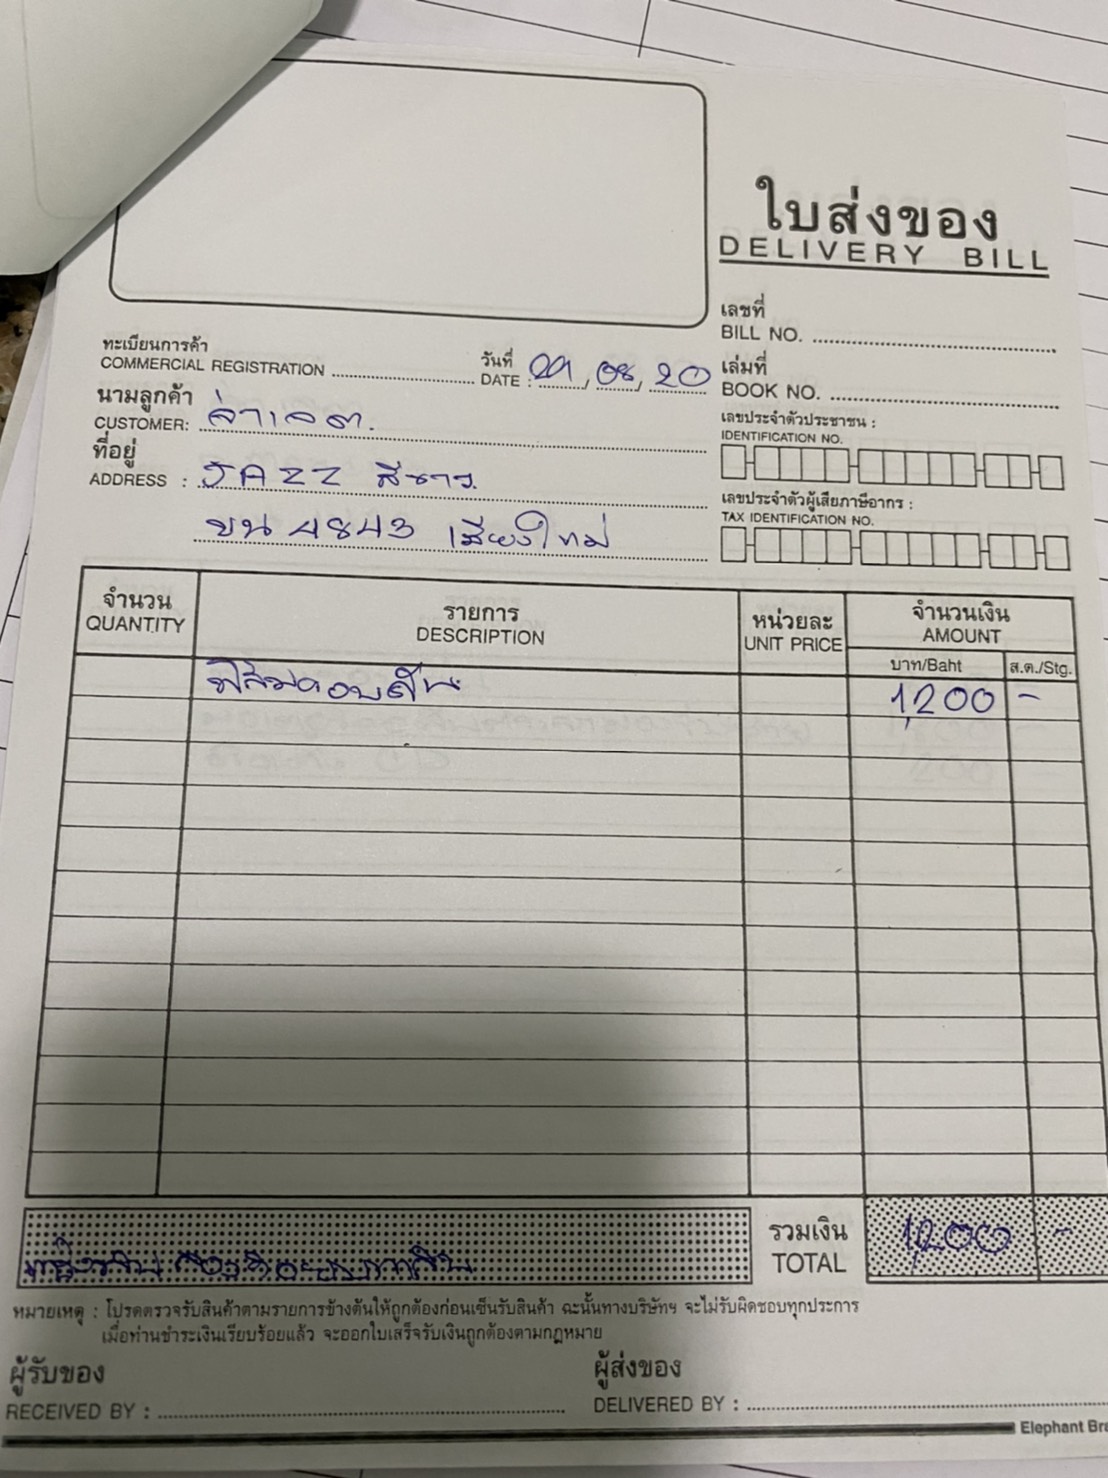 ใบส่งของ
DELIVERY BILL
เลขที่
BILL NO.
ทะเบียนการค้า
COMMERCIAL REGISTRATION
วันที่
DATE : 29, 08, 20
เล่มที่
BOOK NO.
นามลูกค้า
CUSTOMER:
เลขประจำตัวประชาชน :
IDENTIFICATION NO.
ที่อยู่
ADDRESS : JAZZ สีขาว
ขน 4843 เชียงใหม่
เลขประจำตัวผู้เสียภาษีอากร :
TAX IDENTIFICATION NO.
จำนวน
QUANTITY
รายการ
DESCRIPTION
หน่วยละ
UNIT PRICE
จำนวนเงิน
AMOUNT
บาท/Baht ส.ต./Stg.
ฟิล์มรอบคัน 1,200 -
รวมเงิน
TOTAL
1,200 -
หนึ่งพันสองร้อยบาทถ้วน
หมายเหตุ : โปรดตรวจรับสินค้าตามรายการข้างต้นให้ถูกต้องก่อนเซ็นรับสินค้า ฉะนั้นทางบริษัทฯ จะไม่รับผิดชอบทุกประการ
เมื่อท่านชำระเงินเรียบร้อยแล้ว จะออกใบเสร็จรับเงินถูกต้องตามกฎหมาย
ผู้รับของ
RECEIVED BY :
ผู้ส่งของ
DELIVERED BY :
Elephant Bra